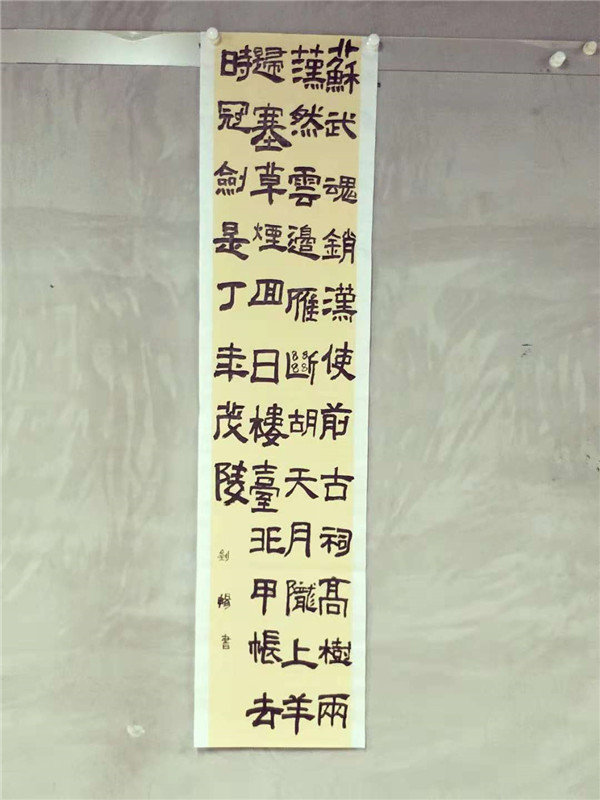 蘇武魂銷漢使前古祠高樹兩
茫然雲邊雁斷胡天月隴上羊
歸塞草煙回日樓臺非甲帳去
時冠劍是丁年茂陵
劉暢書